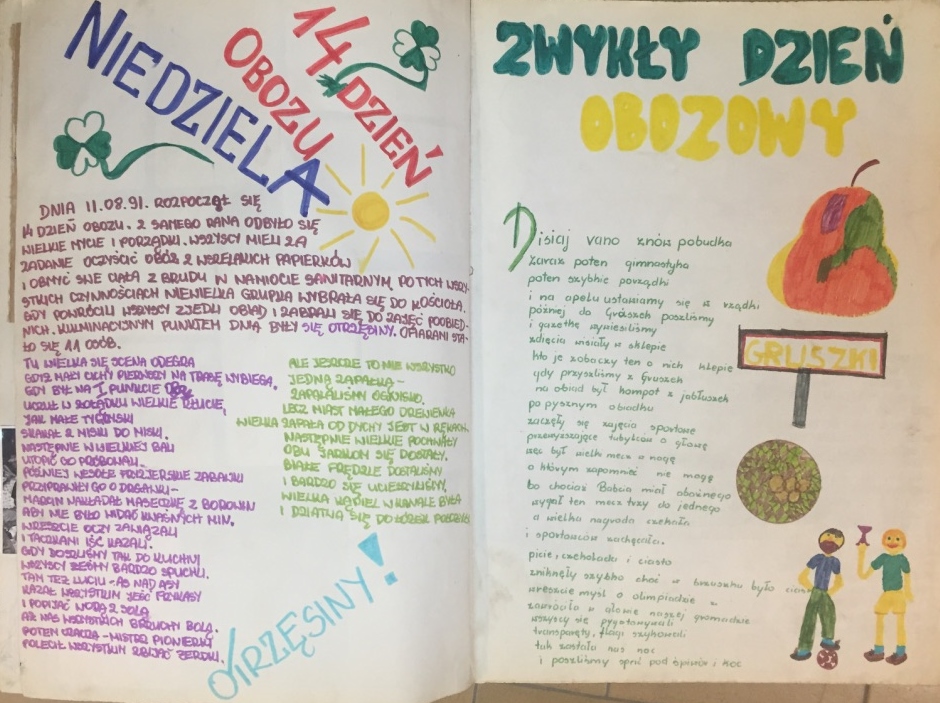 NIEDZIELA
14 DZIEŃ
OBOZU
DNIA 11.08.91. ROZPOCZĄŁ SIĘ
14 DZIEŃ OBOZU. Z SAMEGO RANA ODBYŁO SIĘ
WIELKIE MYCIE I PORZĄDKI. WSZYSCY MIELI ZA
ZADANIE OCZYŚCIĆ OBÓZ Z WSZELAKICH PAPIERKÓW
I OBMYĆ SWE CIAŁA Z BRUDU W NAMIOCIE SANITARNYM. PO TYCH WSZY-
STKICH CZYNNOŚCIACH NIEWIELKA GRUPKA WYBRAŁA SIĘ DO KOŚCIOŁA.
GDY POWRÓCILI WSZYSCY ZJEDLI OBIAD I ZABRALI SIĘ DO ZAJĘĆ POOBIED-
NICH. KULMINACYJNYM PUNKTEM DNIA BYŁY SIĘ OTRZĘSINY. OFIARAMI STA-
ŁO SIĘ 11 OSÓB.
TU WIELKA SIĘ SCENA ODEGRA
GDYŻ MAŁY CICHY PIERWSZY NA TRASĘ WYBIEGA.
GDY BYŁ NA I PUNKCIE
UCZUŁ W ŻOŁĄDKU WIELKIE KŁUCIE,
JAK MAŁE TYGRYSKI
SKAKAŁ Z MISKI DO MISKI.
NASTĘPNIE W WIELKIEJ BALI
UTOPIĆ GO PRÓBOWALI.
PÓŹNIEJ WESOŁE FRYZJERSKIE ZABAWKI
PRZYPRAWIŁY GO O DRGAWKI-
MARCIN NAKŁADAŁ MASECZKĘ Z BOROWIN
ABY NIE BYŁO WIDAĆ KWAŚNYCH MIN.
WRESZCIE OCZY ZAWIĄZALI
I TACZKAMI IŚĆ KAZALI.
GDY DOSZLIŚMY TAK DO KUCHNI
WSZYSCY BYLIŚMY BARDZO SPUCHLI.
TAM TEŻ LUCJU - AS NAD ASY
KAZAŁ WSZYSTKIM JEŚĆ FRYKASY
I POPIJAĆ WODĄ Z SOLĄ
AŻ NAS WSZYSTKICH BRZUCHY BOLĄ.
POTEM - MISTRZ PIONIERKI
POLECIŁ WSZYSTKIM ZBIJAĆ ŻERDKI.
ALE JESZCZE TO NIE WSZYSTKO
JEDNĄ ZAPAŁKĄ -
ZAPALALIŚMY OGNISKO.
LECZ MIAST MAŁEGO DREWIENKA
WIELKA ZAPAŁA OD DYCHY JEST W RĘKACH.
NASTĘPNIE WIELKIE POCHWAŁY
OBU SIĘ DOSTAŁY.
BIAŁE FRĘDZLE DOSTALIŚMY
I BARDZO SIĘ UCIESZYLIŚMY,
WIELKA KĄPIEL W KANALE BYŁA
I DZIATWA SIĘ DO ŁÓŻEK POŁOŻYŁA
OTRZĘSINY!
ZWYKŁY DZIEŃ
OBOZOWY
Disiaj rano znów pobudka
Zaraz potem gimnastyka
potem szybkie porządki
i na apelu ustawiamy się w rządki
później do Gruszek poszliśmy
i gazetkę wywiesiliśmy
zdjęcia wisiały w sklepie
kto je zobaczy ten o nich klepie
gdy przyszliśmy z Gruszek
na obiad był kompot z jabłuszek
po pysznym obiadku
zaczęły się zajęcia sportowe
przewyższające tubylców o głowę
więc był wielki mecz w nogę
o którym zapomnieć nie mogę
bo chociaż Babcia miał obożnego
wygrał ten mecz trzy do jednego
a wielka nagroda czekała
i sportowców zachęcała.
picie, czekoladki i ciasto
zniknęły szybko choć w brzuszku było ciasno
wreszcie myśl o olimpiadzie
zawitała w głowie naszej gromadzie
wszyscy się przygotowywali
transparenty, flagi szykowali
tak zastała nas noc
i poszliśmy spać pod śpiwór i koc
GRUSZKI